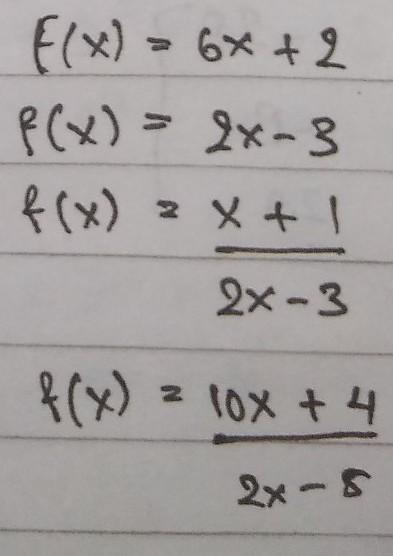 F(x) = 6x + 2
f(x) = 2x - 3
f(x) = x + 1
2x - 3
f(x) = 10x + 4
2x - 5